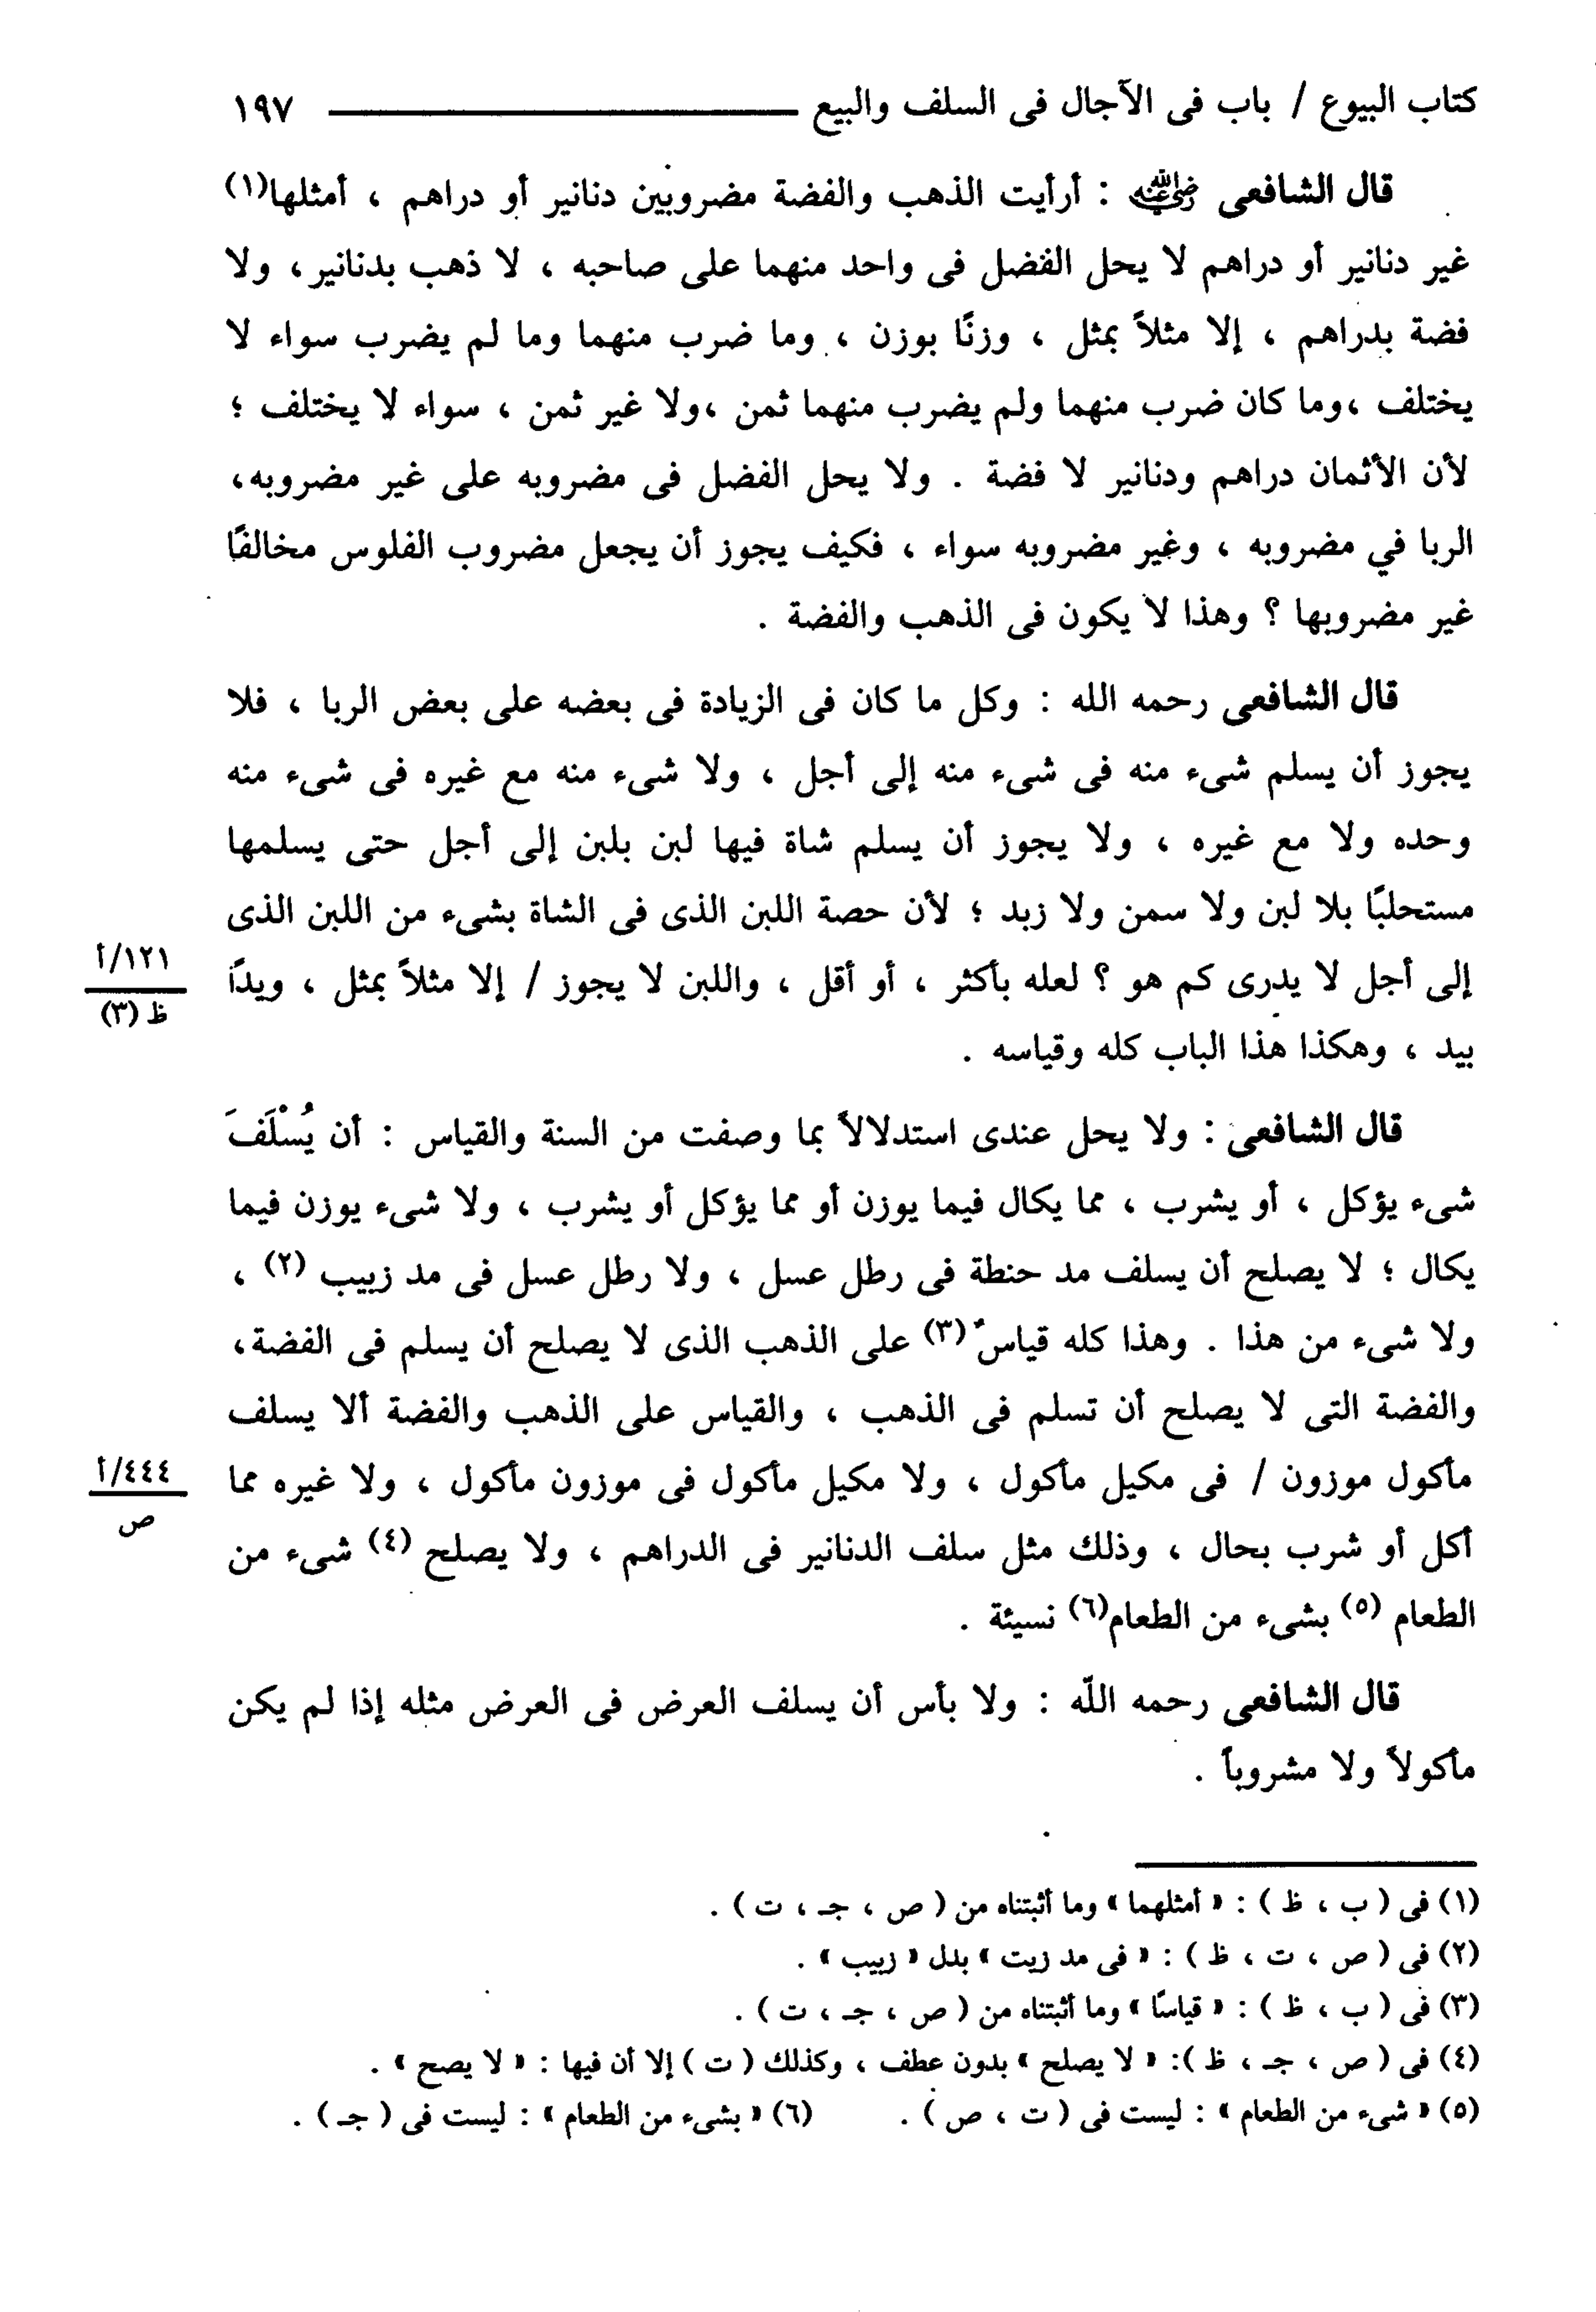 كتاب البيوع / باب فى الآجال فى السلف والبيع ١٩٧
قال الشافعى رضي الله عنه : أرأيت الذهب والفضة مضروبين دنانير أو دراهم ، أمثلها(١)
غير دنانير أو دراهم لا يحل الفضل فى واحد منهما على صاحبه ، لا ذهب بدنانير، ولا
فضة بدراهم ، إلا مثلاً بمثل ، وزنًا بوزن ، وما ضرب منهما وما لم يضرب سواء لا
يختلف ،وما كان ضرب منهما ولم يضرب منهما ثمن ،ولا غير ثمن ، سواء لا يختلف ؛
لأن الأثمان دراهم ودنانير لا فضة . ولا يحل الفضل فى مضروبه على غير مضروبه،
الربا في مضروبه ، وغير مضروبه سواء ، فكيف يجوز أن يجعل مضروب الفلوس مخالفًا
غير مضروبها ؟ وهذا لا يكون فى الذهب والفضة .
قال الشافعى رحمه الله : وكل ما كان فى الزيادة فى بعضه على بعض الربا ، فلا
يجوز أن يسلم شىء منه فى شىء منه إلى أجل ، ولا شىء منه مع غيره فى شىء منه
وحده ولا مع غيره ، ولا يجوز أن يسلم شاة فيها لبن بلبن إلى أجل حتى يسلمها
مستحلبًا بلا لبن ولا سمن ولا زبد ؛ لأن حصة اللبن الذى فى الشاة بشىء من اللبن الذى
إلى أجل لا يدرى كم هو ؟ لعله بأكثر ، أو أقل ، واللبن لا يجوز / إلا مثلاً بمثل ، ويدًا
١٢١/أ
ظ (٣)
بيد ، وهكذا هذا الباب كله وقياسه .
قال الشافعى : ولا يحل عندى استدلالاً بما وصفت من السنة والقياس : أن يُسْلَفَ
شىء يؤكل ، أو يشرب ، مما يكال فيما يوزن أو مما يؤكل أو يشرب ، ولا شىء يوزن فيما
يكال ؛ لا يصلح أن يسلف مد حنطة فى رطل عسل ، ولا رطل عسل فى مد زبيب (٢) ،
ولا شىء من هذا . وهذا كله قياس(٣) على الذهب الذى لا يصلح أن يسلم فى الفضة،
والفضة التى لا يصلح أن تسلم فى الذهب ، والقياس على الذهب والفضة ألا يسلف
مأكول موزون / فى مكيل مأكول ، ولا مكيل مأكول فى موزون مأكول ، ولا غيره مما
٤٤٤/أ
ص
أكل أو شرب بحال ، وذلك مثل سلف الدنانير فى الدراهم ، ولا يصلح (٤) شىء من
الطعام (٥) بشىء من الطعام(٦) نسيئة .
قال الشافعى رحمه اللّه : ولا بأس أن يسلف العرض فى العرض مثله إذا لم يكن
مأكولاً ولا مشروباً .
(١) فى ( ب ، ظ ) : « أمثلهما » وما أثبتناه من ( ص ، جـ ، ت ) .
(٢) فى ( ص ، ت ، ظ ) : « فى مد زيت » بدل « زبيب » .
(٣) فى ( ب ، ظ ) : « قياسًا » وما أثبتناه من ( ص ، جـ ، ت ) .
(٤) فى ( ص ، جـ ، ظ ): « لا يصلح » بدون عطف ، وكذلك ( ت ) إلا أن فيها : « لا يصح » .
(٥) « شىء من الطعام » : ليست فى ( ت ، ص ) . (٦) « بشىء من الطعام » : ليست فى ( جـ ) .